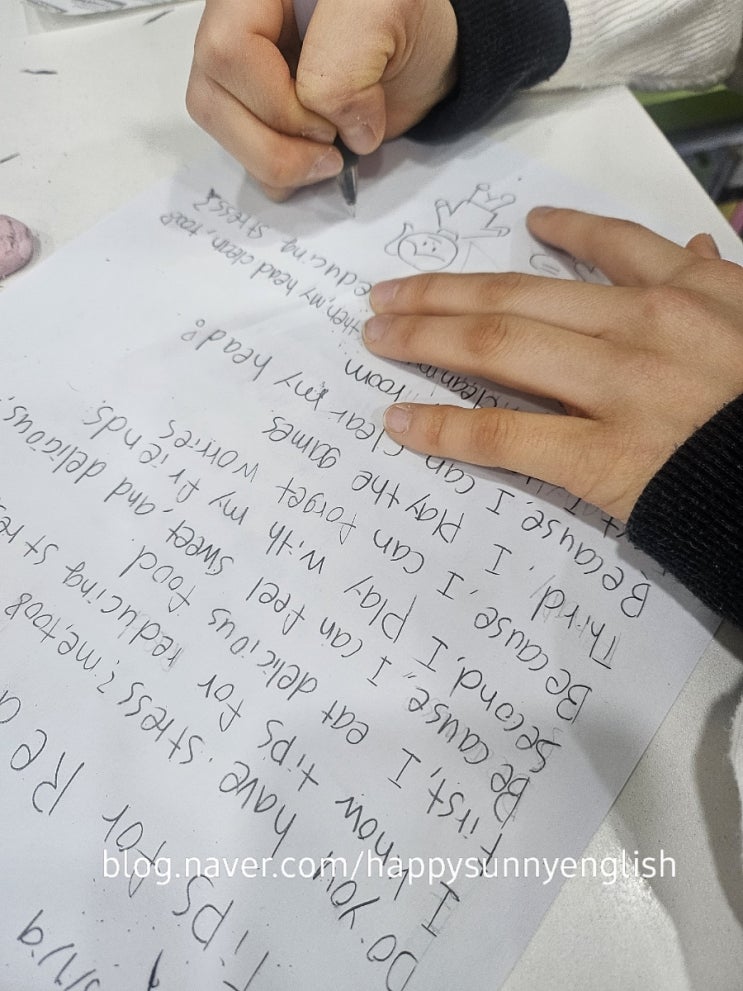 Tips for Re
Do you have stress? me, too!
I know tips for reducing stre
First, I eat delicious food.
Because, I can feel sweet, and delicious,
Second, I play with my friends.
Because, I can forget worries
Third, I play the games
Because, I can clear my head!
room
then, my head clean, too!
educing stress?
blog.naver.com/happysunnyenglish